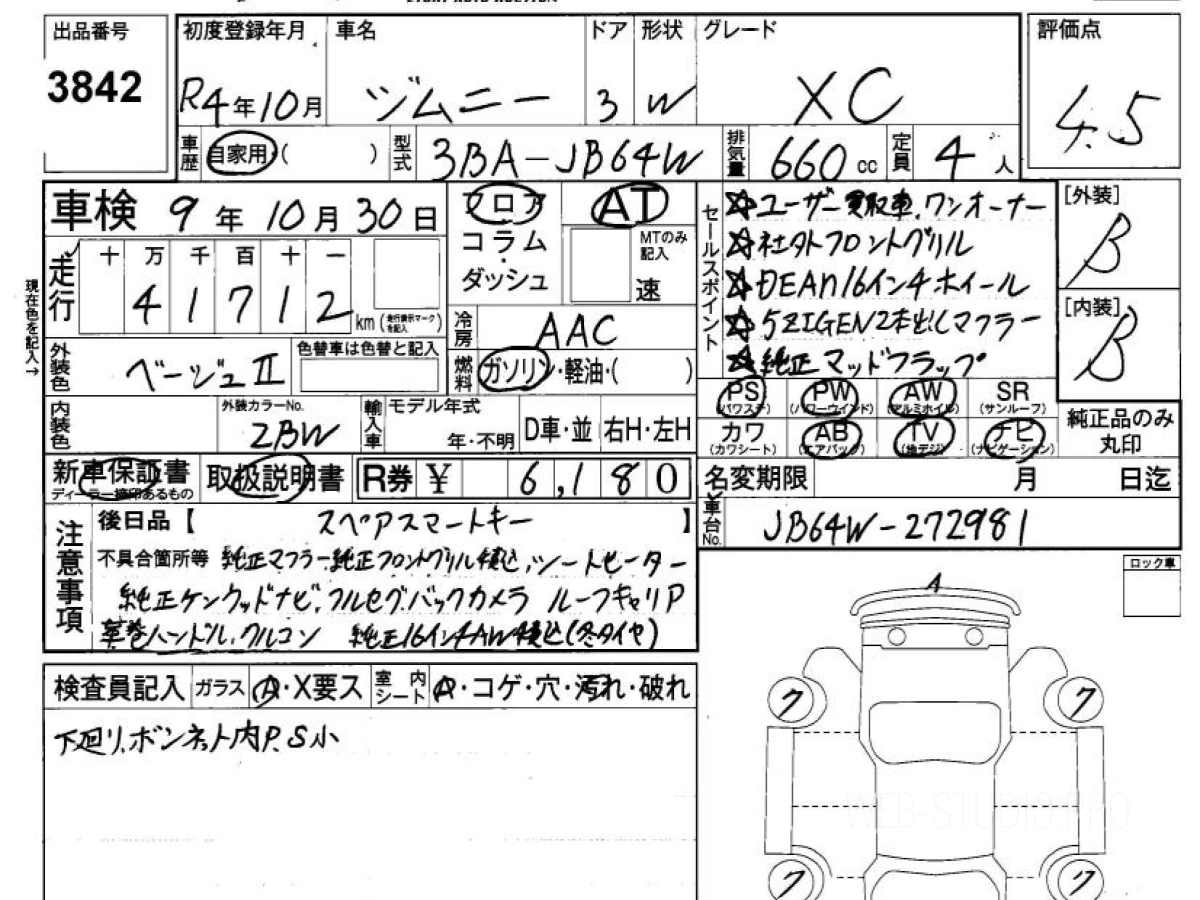 出品番号
3842
初度登録年月 車名 ドア 形状 グレード
R4年10月 ジムニー 3 W XC
評価点
4.5
車歴 自家用・( ) 型式 3BA-JB64W 排気量 660cc 定員 4人
車検 9年10月30日
フロア
コラム
ダッシュ
AT
MTのみ記入
速
走行
十 万 千 百 十 一
4 1 7 1 2 km (走行表示マークを記入)
現在色を記入→
外装色 ベージュII 色替車は色替と記入
内装色 外装カラーNo. 2BW
冷房 AAC
燃料 ガソリン・軽油・( )
輸入車 モデル年式 年・不明 D車・並 右H・左H
セールスポイント
☆ユーザー買取車、ワンオーナー
☆社外フロントグリル
☆DEAN16インチホイール
☆5ZIGEN2本出しマフラー
☆純正マッドフラップ
[外装]
B
[内装]
B
PS (パワステ) PW (パワーウインド) AW (アルミホイル) SR (サンルーフ)
カワ (カワシート) AB (エアバック) TV (地デジ) ナビ (ナビゲーション)
純正品のみ丸印
新車保証書 ディーラー捺印あるもの 取扱説明書 R券 ¥ 6,180
名変期限 月 日迄
車台No. JB64W-272981
注意事項
後日品【 スペアスマートキー 】
不具合箇所等 純正マフラー純正フロントグリル積込、シートヒーター
純正ケンウッドナビ、フルセグ、バックカメラ ルーフキャリア
革巻ハンドル、クルコン 純正16インチAW積込(冬タイヤ)
ロック車
検査員記入 ガラス A・X要ス 室内シート A・コゲ・穴・汚れ・破れ
下廻り、ボンネット内P.S小
A
ワ ワ
WEB-STUDIO.PRO
ワ ワ